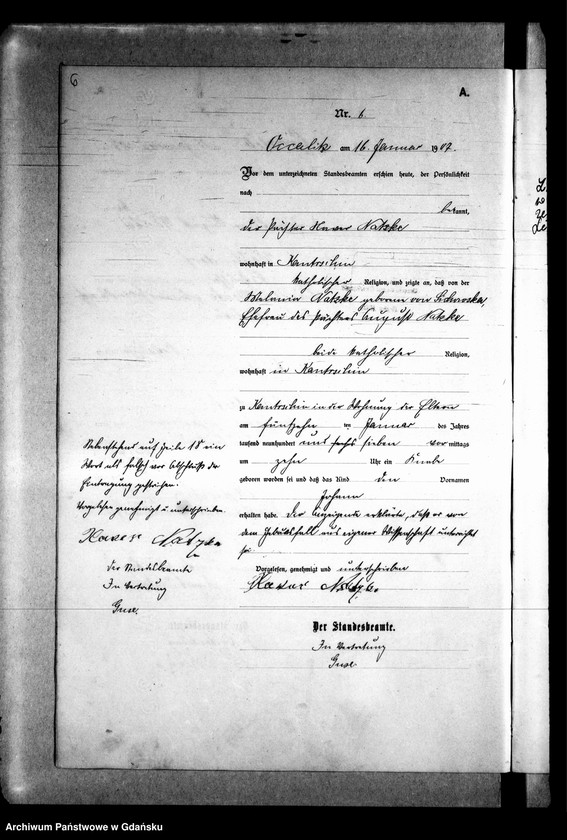 6
A.
Nr. 6.
Occalitz am 16. Januar 1907.
Vor dem unterzeichneten Standesbeamten erschien heute, der Persönlichkeit
nach
bekannt,
der Pächter Xaver Natzke
wohnhaft in Kantrschin
katholischer Religion, und zeigte an, daß von der
Melania Natzke geborene von
Ehefrau des Pächters August Natzke
beide katholischer Religion,
wohnhaft in Kantrschin
zu Kantrschin in der Wohnung der Eltern
am fünfzehn ten Januar des Jahres
tausend neunhundert und sechs sieben vor mittags
um zehn Uhr ein Knabe
geboren worden sei und daß das Kind den Vornamen
Johann
erhalten habe. Der Anzeigende erklärte, daß er von
dem Geburtsfall aus eigener Wissenschaft unterrichtet
sei.
Vorgelesen, genehmigt und unterschrieben
Xaver Natzke
Der Standesbeamte.
In Vertretung
Guse
Nebenstehend auf Zeile 18 ein
Wort als falsch vor Abschluß der
Eintragung gestrichen.
Vorgelesen genehmigt u. unterschrieben.
Xaver Natzke
Der Standesbeamte
In Vertretung
Guse.
Archiwum Państwowe w Gdańsku